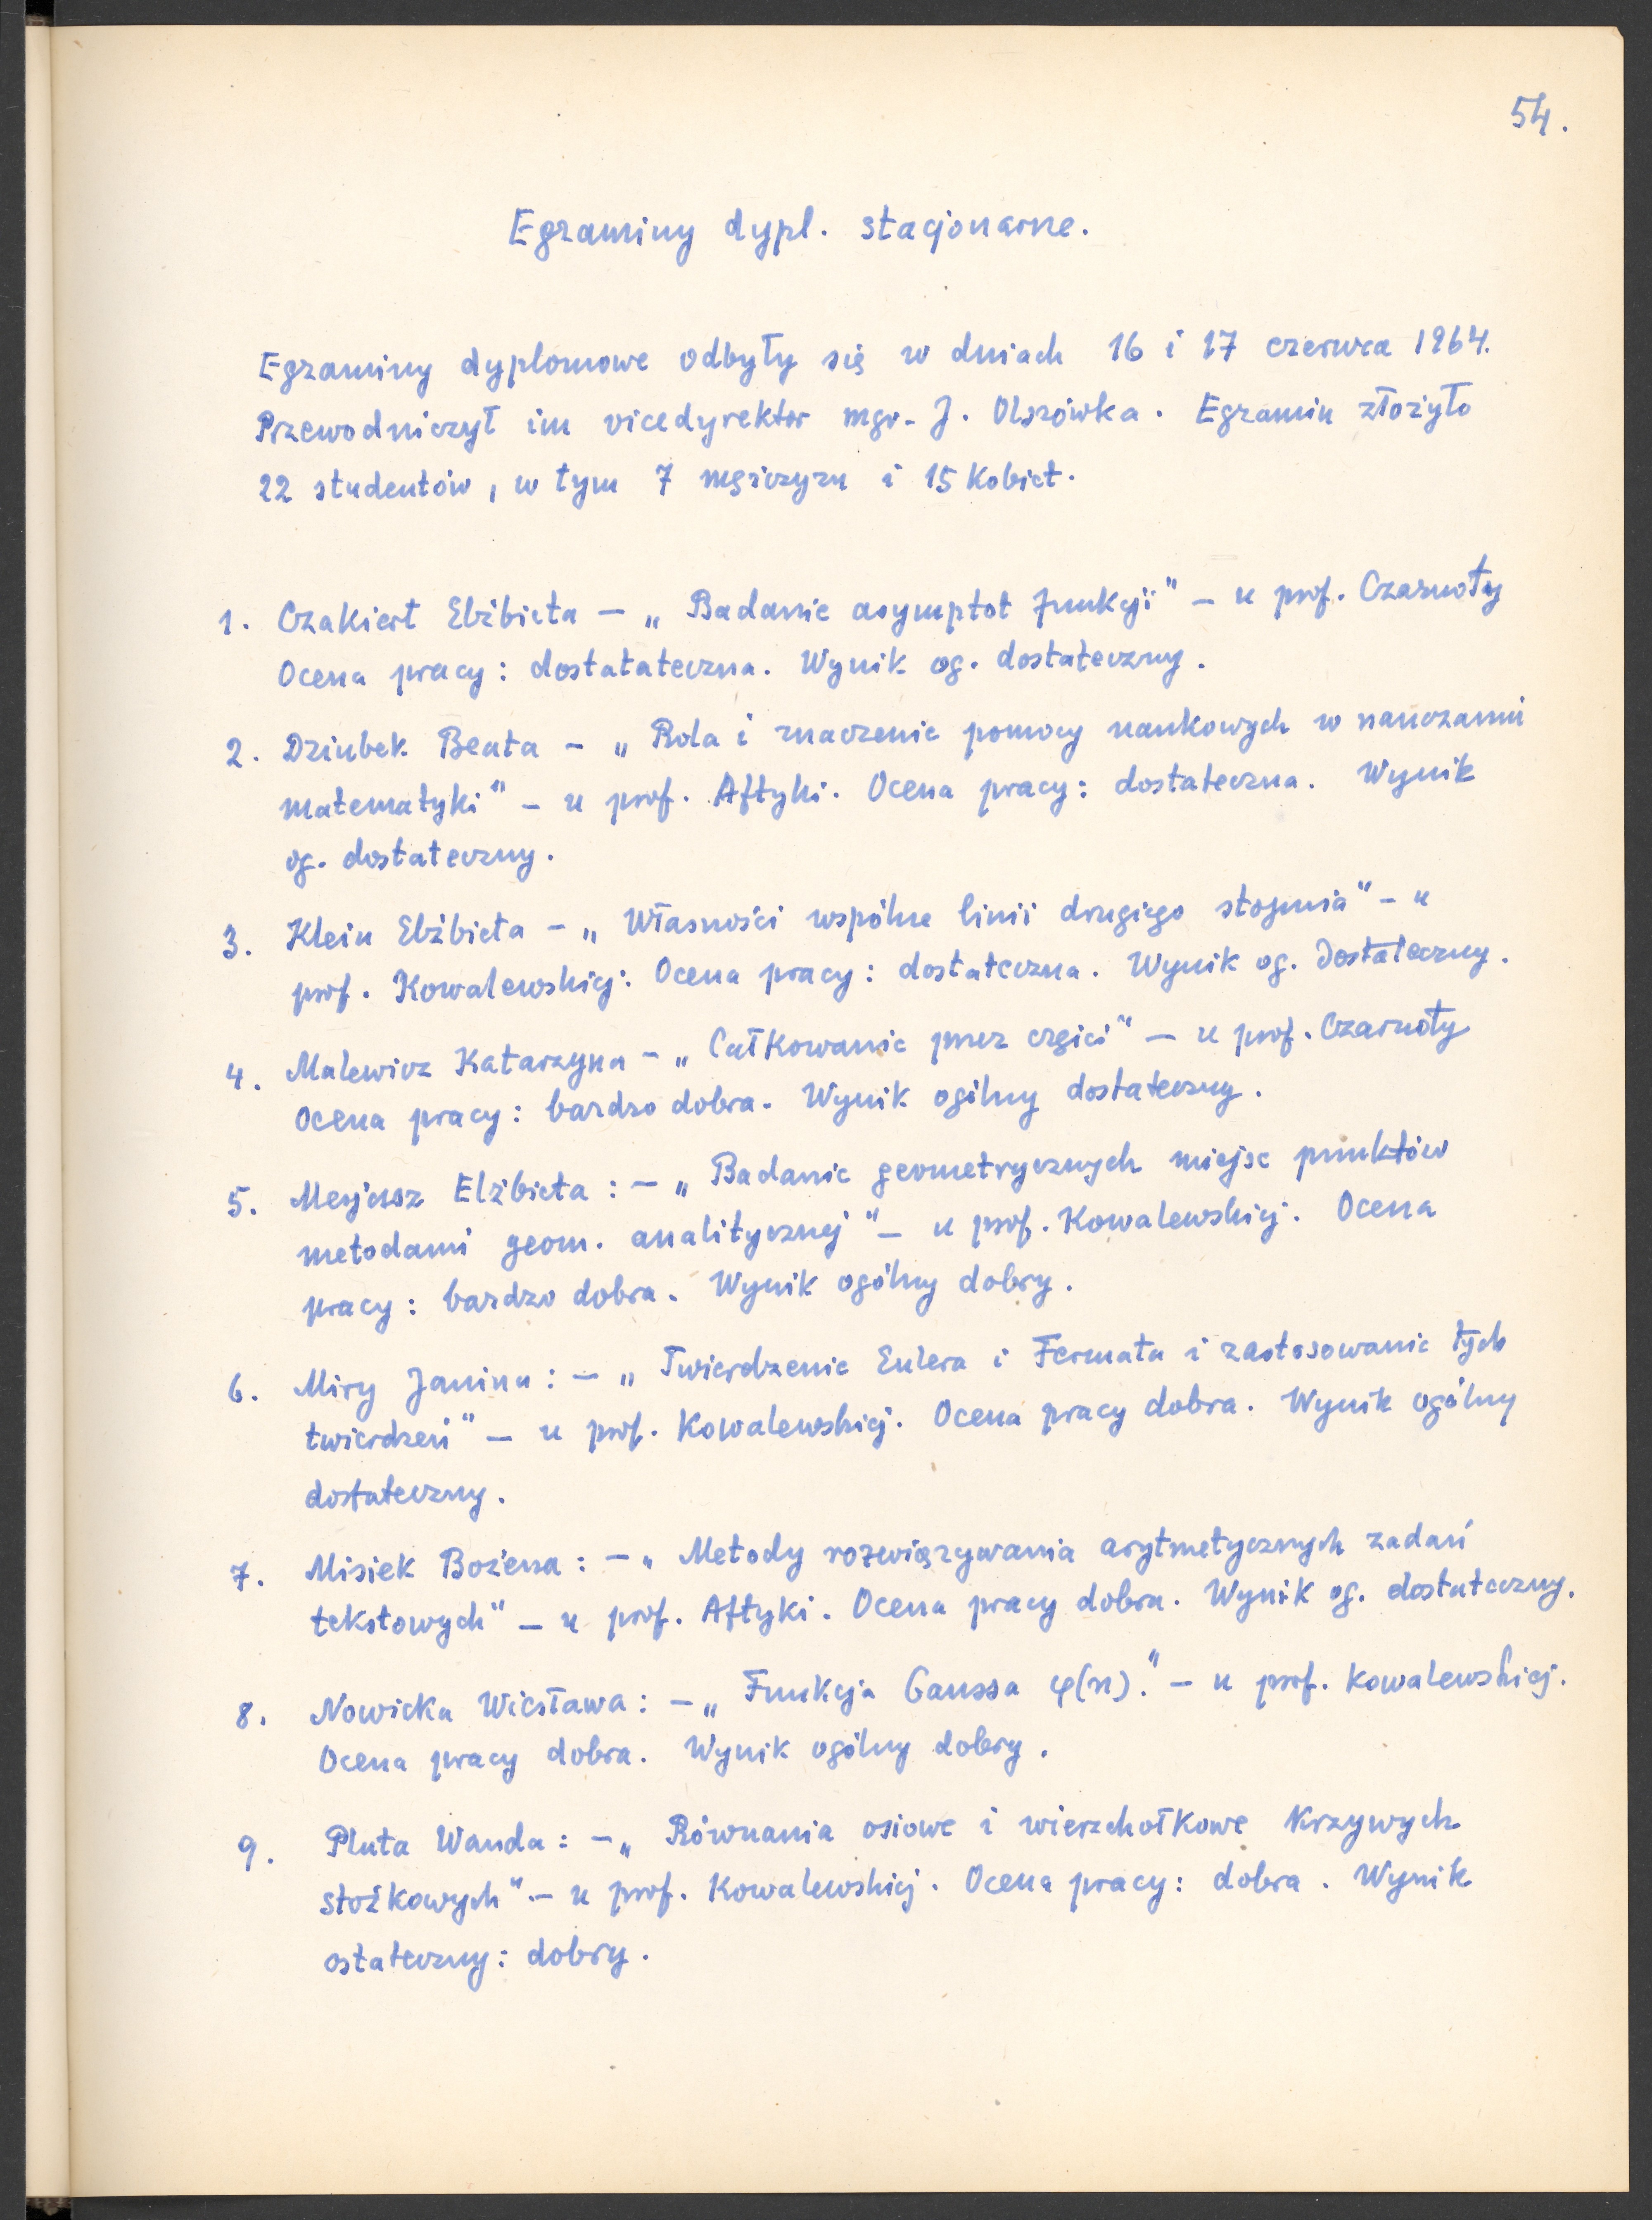 54.
Egzaminy dypl. stacjonarne.
Egzaminy dyplomowe odbyły się w dniach 16 i 17 czerwca 1964.
Przewodniczył im vicedyrektor mgr. J. Olszówka. Egzamin złożyło
22 studentów, w tym 7 mężczyzn i 15 kobiet.
1. Czakiert Elżbieta – „Badanie asymptot funkcji" – u prof. Czarnoty
Ocena pracy: dostatateczna. Wynik og. dostateczny.
2. Dziubek Beata – „Rola i znaczenie pomocy naukowych w nauczaniu
matematyki" – u prof. Aftyki. Ocena pracy: dostateczna. Wynik
og. dostateczny.
3. Klein Elżbieta – „Własności wspólne linii drugiego stopnia" – u
prof. Kowalewskiej. Ocena pracy: dostateczna. Wynik og. Dostateczny.
4. Malewicz Katarzyna – „Całkowanie przez części" – u prof. Czarnoty
Ocena pracy: bardzo dobra. Wynik ogólny dostateczny.
5. Elżbieta : – „Badanie geometrycznych miejsc punktów
metodami geom. analitycznej" – u prof. Kowalewskiej. Ocena
pracy: bardzo dobra. Wynik ogólny dobry.
6. Miry Janina : – „Twierdzenie Eulera i Fermata i zastosowanie tych
twierdzeń" – u prof. Kowalewskiej. Ocena pracy dobra. Wynik ogólny
dostateczny.
7. Misiek Bożena : – „Metody rozwiązywania arytmetycznych zadań
tekstowych" – u prof. Aftyki. Ocena pracy dobra. Wynik og. dostateczny.
8. Nowicka Wiesława : – „Funkcja Gaussa φ(n)." – u prof. Kowalewskiej.
Ocena pracy dobra. Wynik ogólny dobry.
9. Pluta Wanda : – „Równania osiowe i wierzchołkowe krzywych
stożkowych". – u prof. Kowalewskiej. Ocena pracy: dobra. Wynik
ostateczny: dobry.